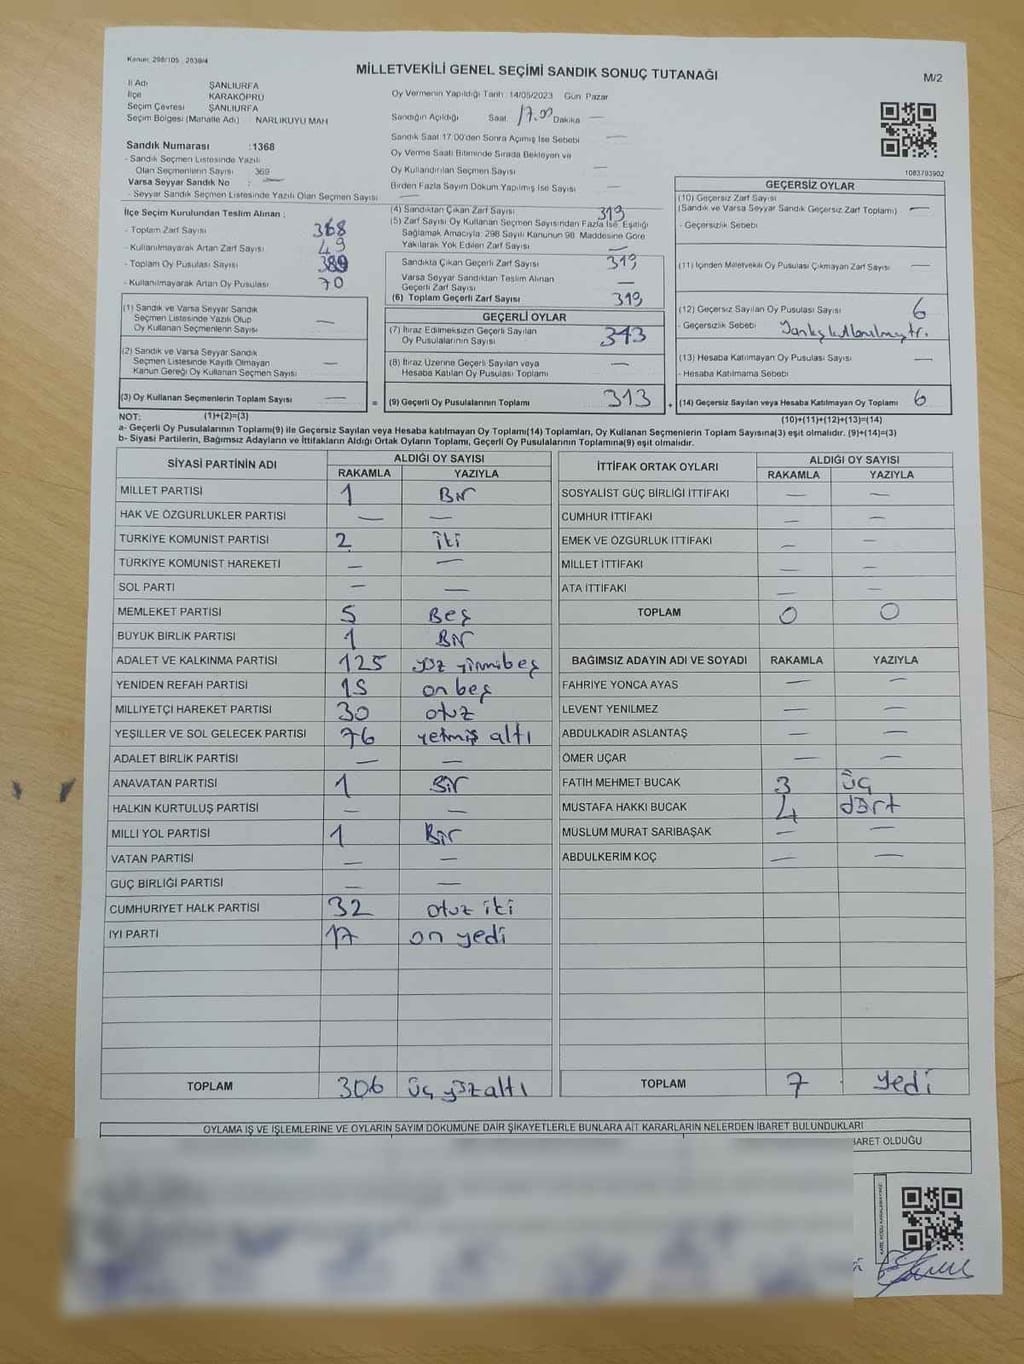 Kanun: 298/105 2839/4
MİLLETVEKİLİ GENEL SEÇİMİ SANDIK SONUÇ TUTANAĞI
M/2
İl Adı ŞANLIURFA
İlçe KARAKÖPRÜ
Seçim Çevresi ŞANLIURFA
Seçim Bölgesi (Mahalle Adı) NARLIKUYU MAH
Oy Vermenin Yapıldığı Tarih : 14/05/2023 Gün Pazar
Sandığın Açıldığı Saat 17.00 Dakika —
Sandık Saat 17:00'den Sonra Açılmış İse Sebebi —
Oy Verme Saati Bitiminde Sırada Bekleyen ve
Oy Kullandırılan Seçmen Sayısı —
Birden Fazla Sayım Döküm Yapılmış İse Sayısı —
1083793902
Sandık Numarası :1368
- Sandık Seçmen Listesinde Yazılı
Olan Seçmenlerin Sayısı 369
Varsa Seyyar Sandık No : —
- Seyyar Sandık Seçmen Listesinde Yazılı Olan Seçmen Sayısı —
İlçe Seçim Kurulundan Teslim Alınan ;
- Toplam Zarf Sayısı 368
- Kullanılmayarak Artan Zarf Sayısı 49
- Toplam Oy Pusulası Sayısı 389
- Kullanılmayarak Artan Oy Pusulası 70
(1) Sandık ve Varsa Seyyar Sandık
Seçmen Listesinde Yazılı Olup
Oy Kullanan Seçmenlerin Sayısı —
(2) Sandık ve Varsa Seyyar Sandık
Seçmen Listesinde Kayıtlı Olmayan
Kanun Gereği Oy Kullanan Seçmen Sayısı —
(3) Oy Kullanan Seçmenlerin Toplam Sayısı — =
(4) Sandıktan Çıkan Zarf Sayısı 319
(5) Zarf Sayısı Oy Kullanan Seçmen Sayısından Fazla İse, Eşitliği
Sağlamak Amacıyla; 298 Sayılı Kanunun 98. Maddesine Göre
Yakılarak Yok Edilen Zarf Sayısı —
Sandıkta Çıkan Geçerli Zarf Sayısı 319
Varsa Seyyar Sandıktan Teslim Alınan
Geçerli Zarf Sayısı —
(6) Toplam Geçerli Zarf Sayısı 319
GEÇERLİ OYLAR
(7) İtiraz Edilmeksizin Geçerli Sayılan
Oy Pusulalarının Sayısı 313
(8) İtiraz Üzerine Geçerli Sayılan veya
Hesaba Katılan Oy Pusulası Toplamı —
(9) Geçerli Oy Pusulalarının Toplamı 313 +
GEÇERSİZ OYLAR
(10) Geçersiz Zarf Sayısı
(Sandık ve Varsa Seyyar Sandık Geçersiz Zarf Toplamı) —
- Geçersizlik Sebebi
(11) İçinden Milletvekili Oy Pusulası Çıkmayan Zarf Sayısı —
(12) Geçersiz Sayılan Oy Pusulası Sayısı 6
- Geçersizlik Sebebi Yanlış kullanılmıştır.
(13) Hesaba Katılmayan Oy Pusulası Sayısı —
- Hesaba Katılmama Sebebi
(14) Geçersiz Sayılan veya Hesaba Katılmayan Oy Toplamı 6
NOT: (1)+(2)=(3) (10)+(11)+(12)+(13)=(14)
a- Geçerli Oy Pusulalarının Toplamı(9) ile Geçersiz Sayılan veya Hesaba katılmayan Oy Toplamı(14) Toplamları, Oy Kullanan Seçmenlerin Toplam Sayısına(3) eşit olmalıdır. (9)+(14)=(3)
b- Siyasi Partilerin, Bağımsız Adayların ve İttifakların Aldığı Ortak Oyların Toplamı, Geçerli Oy Pusulalarının Toplamına(9) eşit olmalıdır.
SİYASİ PARTİNİN ADI ALDIĞI OY SAYISI
RAKAMLA YAZIYLA
MİLLET PARTİSİ 1 Bir
HAK VE ÖZGÜRLÜKLER PARTİSİ — —
TÜRKİYE KOMÜNİST PARTİSİ 2 iki
TÜRKİYE KOMÜNİST HAREKETİ — —
SOL PARTİ — —
MEMLEKET PARTİSİ 5 Beş
BÜYÜK BİRLİK PARTİSİ 1 Bir
ADALET VE KALKINMA PARTİSİ 125 yüz yirmibeş
YENİDEN REFAH PARTİSİ 15 on beş
MİLLİYETÇİ HAREKET PARTİSİ 30 otuz
YEŞİLLER VE SOL GELECEK PARTİSİ 76 yetmiş altı
ADALET BİRLİK PARTİSİ — —
ANAVATAN PARTİSİ 1 Bir
HALKIN KURTULUŞ PARTİSİ — —
MİLLİ YOL PARTİSİ 1 Bir
VATAN PARTİSİ — —
GÜÇ BİRLİĞİ PARTİSİ — —
CUMHURİYET HALK PARTİSİ 32 otuz iki
İYİ PARTİ 17 on yedi
TOPLAM 306 üç yüz altı
İTTİFAK ORTAK OYLARI ALDIĞI OY SAYISI
RAKAMLA YAZIYLA
SOSYALİST GÜÇ BİRLİĞİ İTTİFAKI — —
CUMHUR İTTİFAKI — —
EMEK VE ÖZGÜRLÜK İTTİFAKI — —
MİLLET İTTİFAKI — —
ATA İTTİFAKI — —
TOPLAM 0 0
BAĞIMSIZ ADAYIN ADI VE SOYADI RAKAMLA YAZIYLA
FAHRİYE YONCA AYAS — —
LEVENT YENİLMEZ — —
ABDULKADİR ASLANTAŞ — —
ÖMER UÇAR — —
FATİH MEHMET BUCAK 3 üç
MUSTAFA HAKKI BUCAK 4 dört
MÜSLÜM MURAT SARIBAŞAK — —
ABDULKERİM KOÇ — —
TOPLAM 7 yedi
OYLAMA İŞ VE İŞLEMLERİNE VE OYLARIN SAYIM DÖKÜMÜNE DAİR ŞİKAYETLERLE BUNLARA AİT KARARLARIN NELERDEN İBARET BULUNDUKLARI
İBARET OLDUĞU